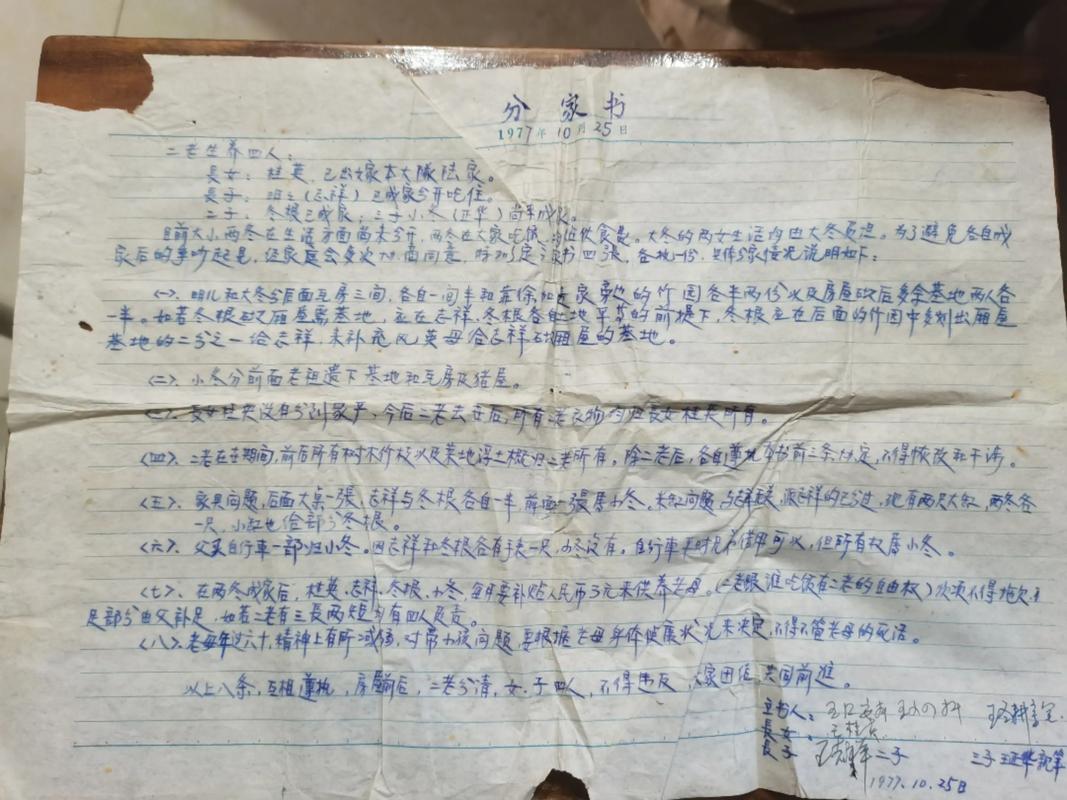 分家书
1977年10月25日
二老生养四人：
長女：桂英，已出嫁本大隊陆家。
長子：(志祥)已成家分开吃住。
二子：冬根已成家；三子小冬(正华)尚未成家。
目前大小两冬在生活方面尚未分开，两冬在大家吃饭，大冬的两女生活均由大冬负担。为了避免各自成
家后的争吵起见，经家庭会多次加商同意，特订定分家书四张，各执一份，具体分家情况说明如下：
(一)、明儿和大冬分后面瓦房三间，各自一间半和靠徐家宅地的竹园各半两份以及房屋砍后多余基地两人各
一半。如若冬根砍厢屋需基地，应在志祥，冬根各自地平等的前提下，冬根应在后面的竹园中多划出厢屋
基地的二分之一给志祥，来补充英母给志祥厢屋的基地。
(二)、小冬分前面老祖遗下基地和瓦房及猪屋。
(三)、長女桂英没有分到家产，今后二老去世后，所有二老衣物均归長女桂英所有。
(四)、二老在世期间，前后所有树木竹权以及菜地浮土概归二老所有。除二老后，各自遵执本书前三条决定，不得恢改和干涉。
(五)、家具问题，后面大桌一張，志祥与冬根各自一半，前面一張属小冬。米缸问题与志祥无关，派志祥的已分过，现有两只大缸，两冬各
一只，小缸也给部分冬根。
(六)、父买自行车一部归小冬。因志祥和冬根各有手表一只，小冬没有。自行车平时兄弟借用可以，但所有权属小冬。
(七)、在两冬成家后，桂英、志祥、冬根、小冬，每月要补贴人民币3元来供养老母。(二老跟谁吃饭有二老的自由权)次项不得拖欠，不
足部分由父补足，如若二老有三長两短均有四人负责。
(八)、老母年过六十，精神上有所减弱，对带小孩问题，要根据老母身体健康状况来决定，不得不管老母的死活。
以上八条，互相遵执，房屋前后，二老分清，女、子四人，不得违反，大家团结，共同前進。
立书人：
長女：王桂英
長子 王志祥 二子 三子 王正华 執笔
1977.10.25日